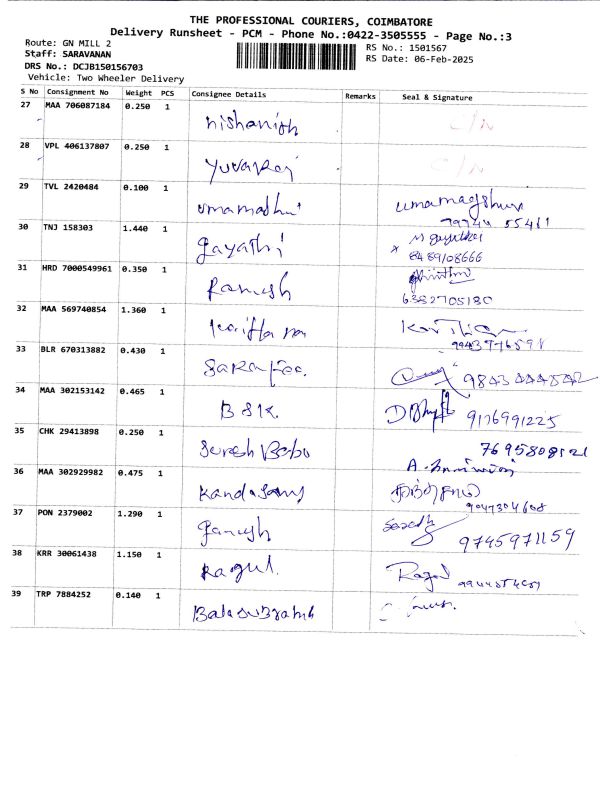 THE PROFESSIONAL COURIERS, COIMBATORE
Delivery Runsheet - PCM - Phone No.:0422-3505555 - Page No.:3
Route: GN MILL 2
RS No.: 1501567
Staff: SARAVANAN
RS Date: 06-Feb-2025
DRS No.: DCJB150156703
Vehicle: Two Wheeler Delivery
S No Consignment No Weight PCS Consignee Details Remarks Seal & Signature
27 MAA 706087184 0.250 1 nishanish C/N
28 VPL 406137807 0.250 1 yuvaraj C/N
29 TVL 2420484 0.100 1 umamashi
30 TNJ 158303 1.440 1 gayathi
8489108666
31 HRD 7000549961 0.350 1 Ramesh
6382705180
32 MAA 569740854 1.360 1
33 BLR 670313882 0.430 1
34 MAA 302153142 0.465 1 BSK. 9176991225
35 CHK 29413898 0.250 1 Suresh Babu 7695808121
36 MAA 302929982 0.475 1 Kandasamy
9047304608
37 PON 2379002 1.290 1 ganesh 9745971159
38 KRR 30061438 1.150 1 Ragul. Ragul
39 TRP 7884252 0.140 1